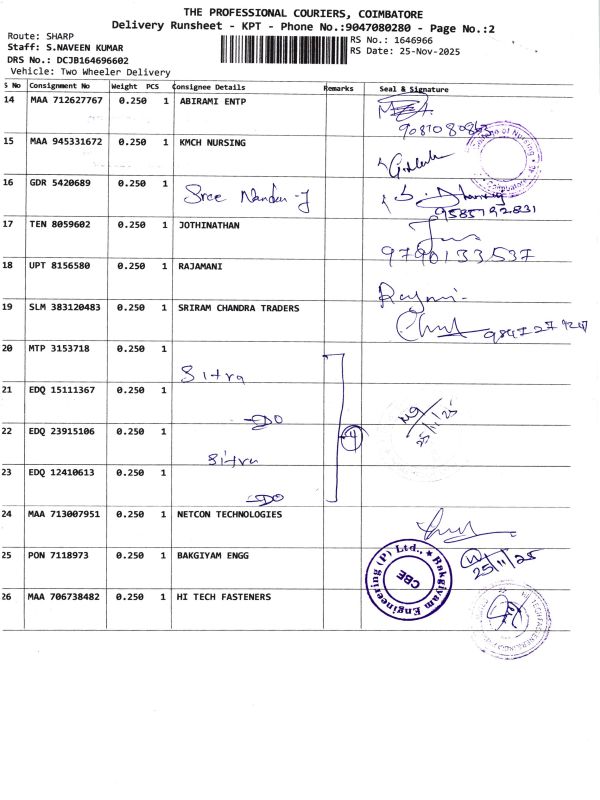 THE PROFESSIONAL COURIERS, COIMBATORE
Delivery Runsheet - KPT - Phone No.:9047080280 - Page No.:2
Route: SHARP
Staff: S.NAVEEN KUMAR
DRS No.: DCJB164696602
Vehicle: Two Wheeler Delivery
RS No.: 1646966
RS Date: 25-Nov-2025
S No Consignment No Weight PCS Consignee Details Remarks Seal & Signature
14 MAA 712627767 0.250 1 ABIRAMI ENTP
15 MAA 945331672 0.250 1 KMCH NURSING
16 GDR 5420689 0.250 1 Sree Nandan-J
9585792831
17 TEN 8059602 0.250 1 JOTHINATHAN
9790133537
18 UPT 8156580 0.250 1 RAJAMANI
19 SLM 383120483 0.250 1 SRIRAM CHANDRA TRADERS
20 MTP 3153718 0.250 1 Sitra
21 EDQ 15111367 0.250 1 -DO
22 EDQ 23915106 0.250 1 Sitra
4
25/11/25
23 EDQ 12410613 0.250 1 -DO
24 MAA 713007951 0.250 1 NETCON TECHNOLOGIES
25 PON 7118973 0.250 1 BAKGIYAM ENGG
Bakgiyam Engineering (P) Ltd., ★
CBE
25/11/25
26 MAA 706738482 0.250 1 HI TECH FASTENERS